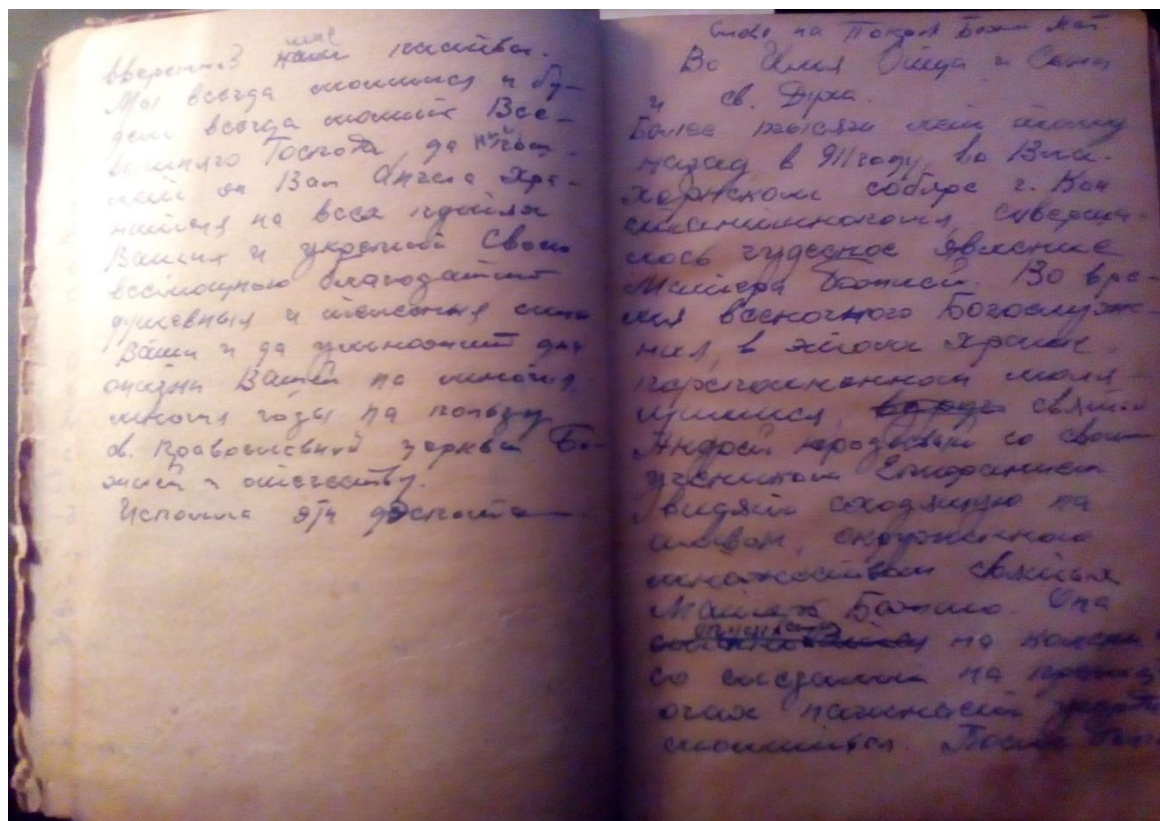 вверенной мне паствы.
Мы всегда молимся и бу-
дем всегда молить Все-
вышняго Господа, да
Вам Ангела Хра-
нителя на всех путях
Ваших и укрепит Своею
всемощною благодатию
душевныя и телесныя силы
Ваши и да умножит дни
жизни Вашей на многия,
многия годы на пользу
св. православной церкви Бо-
жией и отечеству.
Исполла эти деспота
Слово на Покров Божией Мат.
Во Имя Отца и Сына
и св. Духа.
Более тысячи лет тому
назад в 911 году, во Вла-
хернском соборе г. Кон
стантинополя, соверши-
лось чудесное явление
Матери Божией. Во вре-
мя всеночного Богослуже-
ния, в этом храме,
переполненном моля-
щимися, святый
Андрей юродивый со своим
учеником Епифанием
видят сходящую на
амвон, окруженною
множеством святых
Матерь Божию. Она
на колени
со слезами на
очах начинает
молиться. После